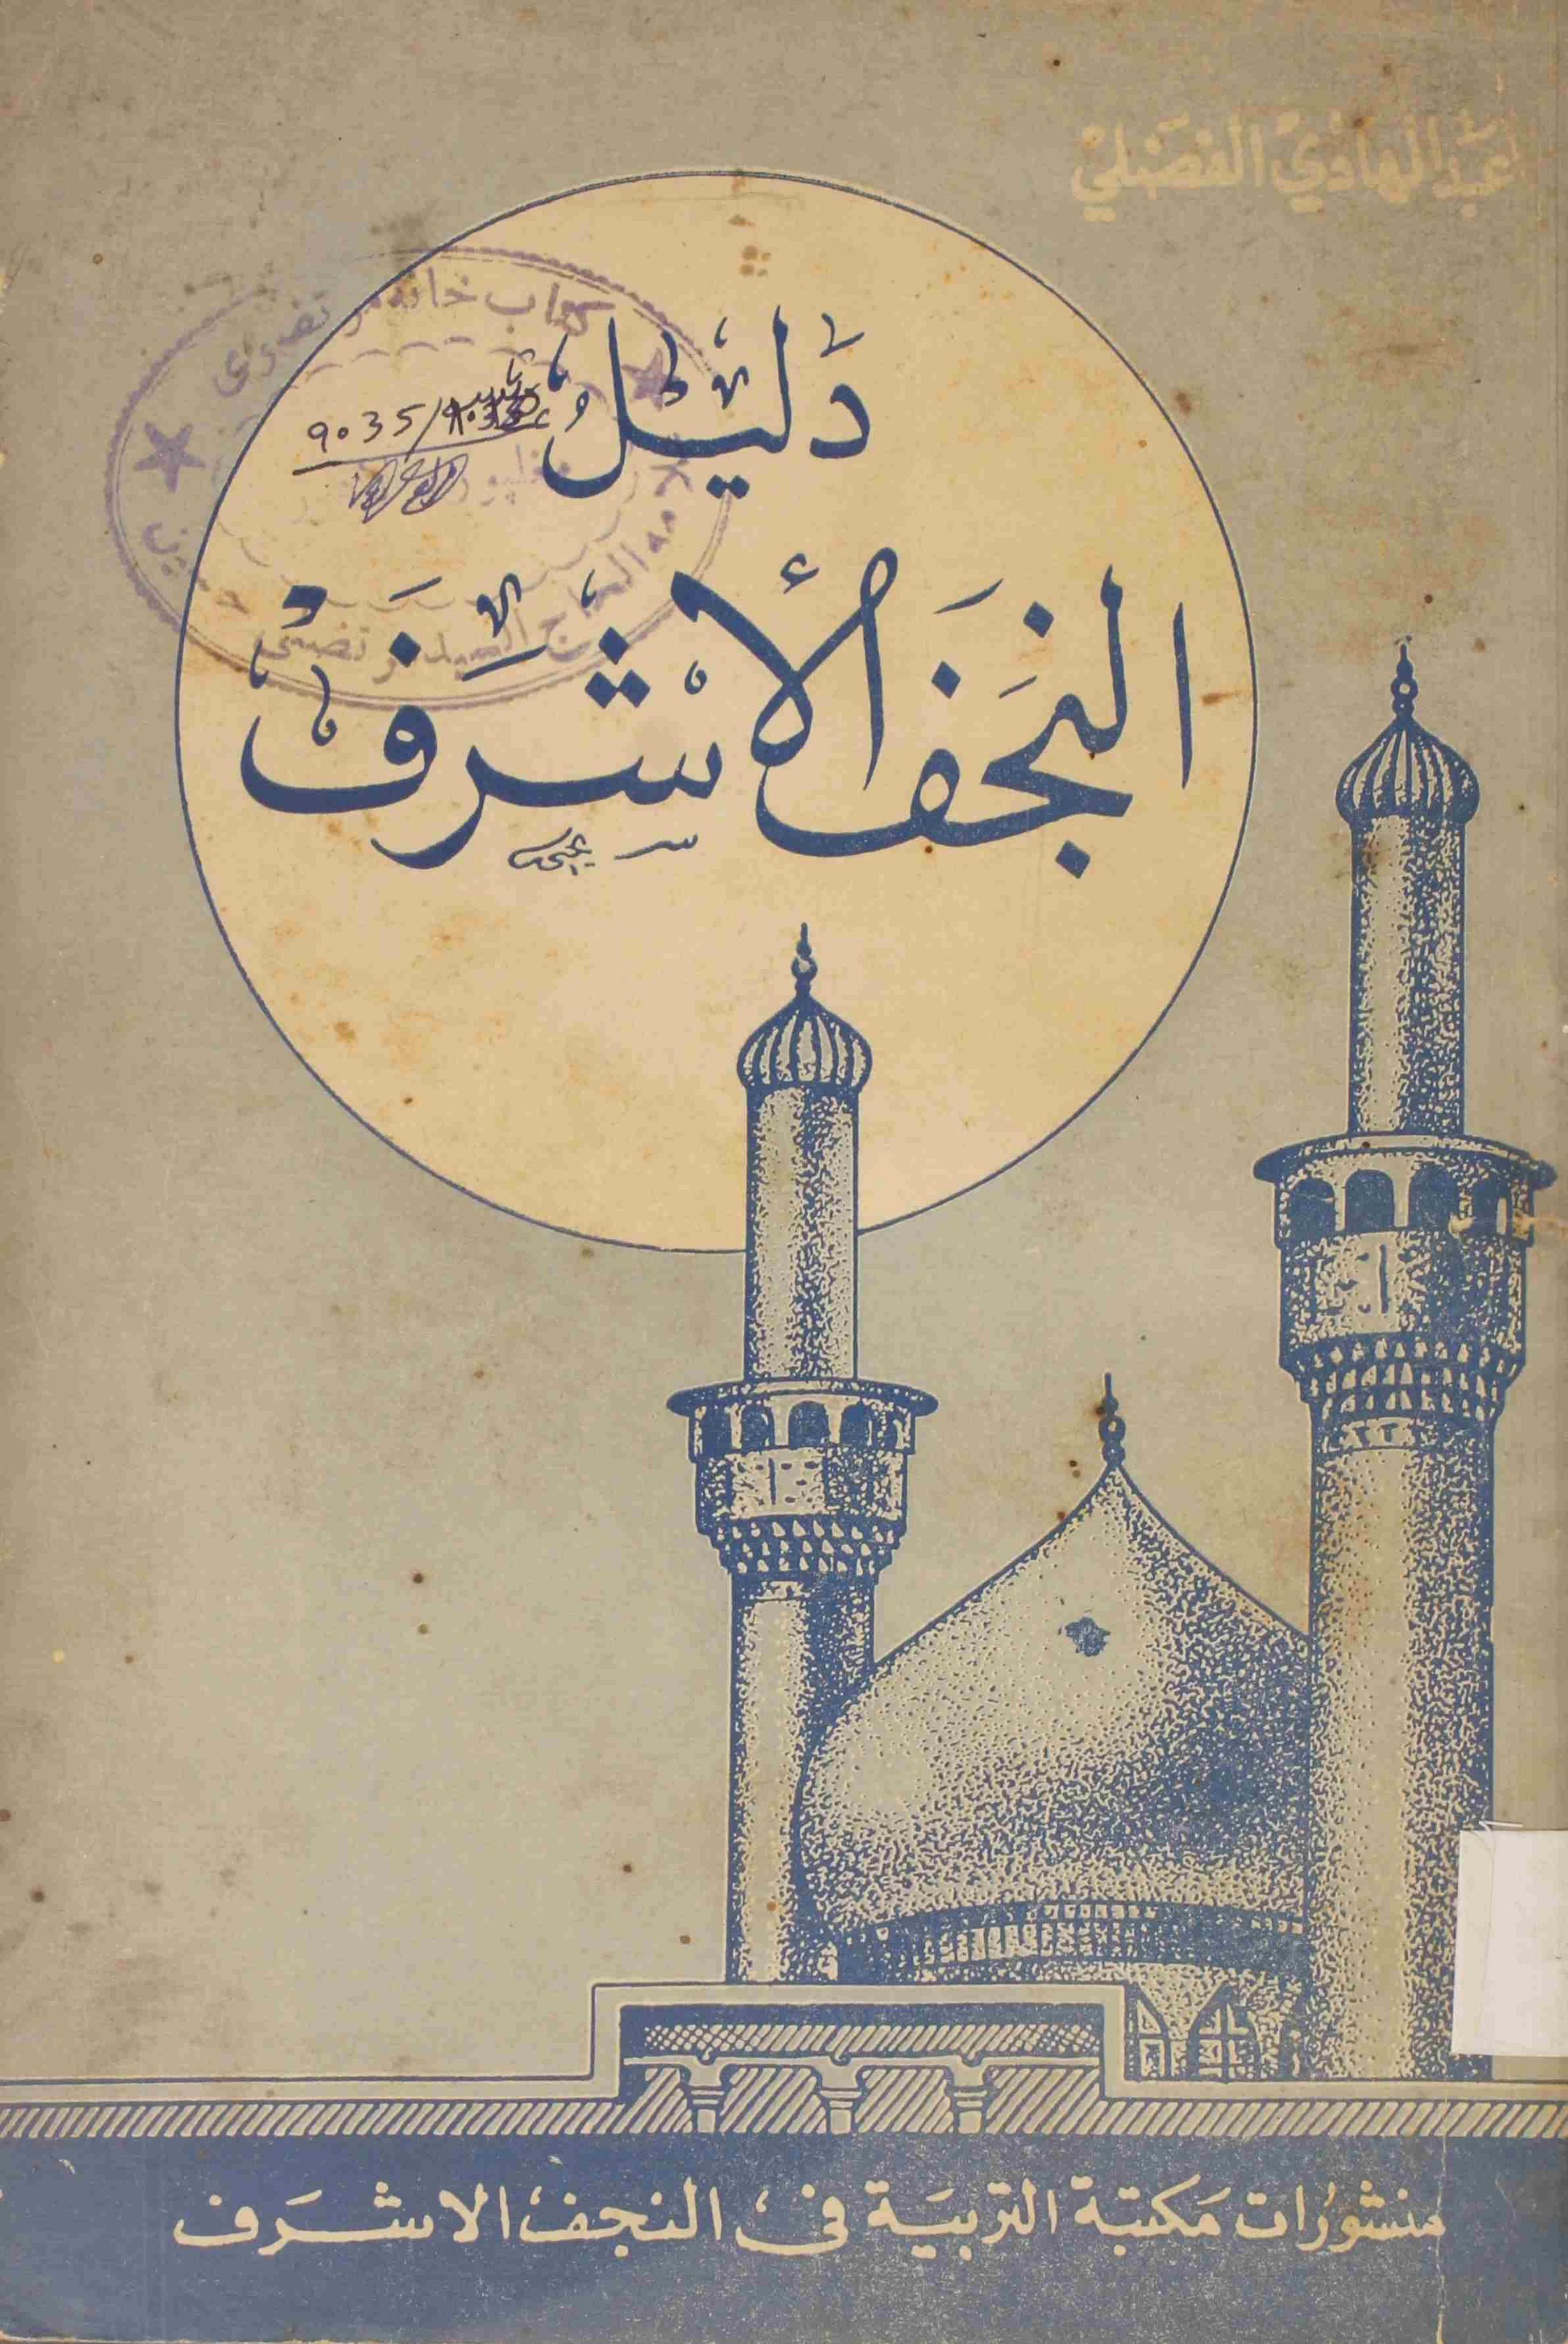 عبد الهادي الفضلي
دليل
النجف الأشرف
9035/
منشورات مكتبة التربية في النجف الاشرف